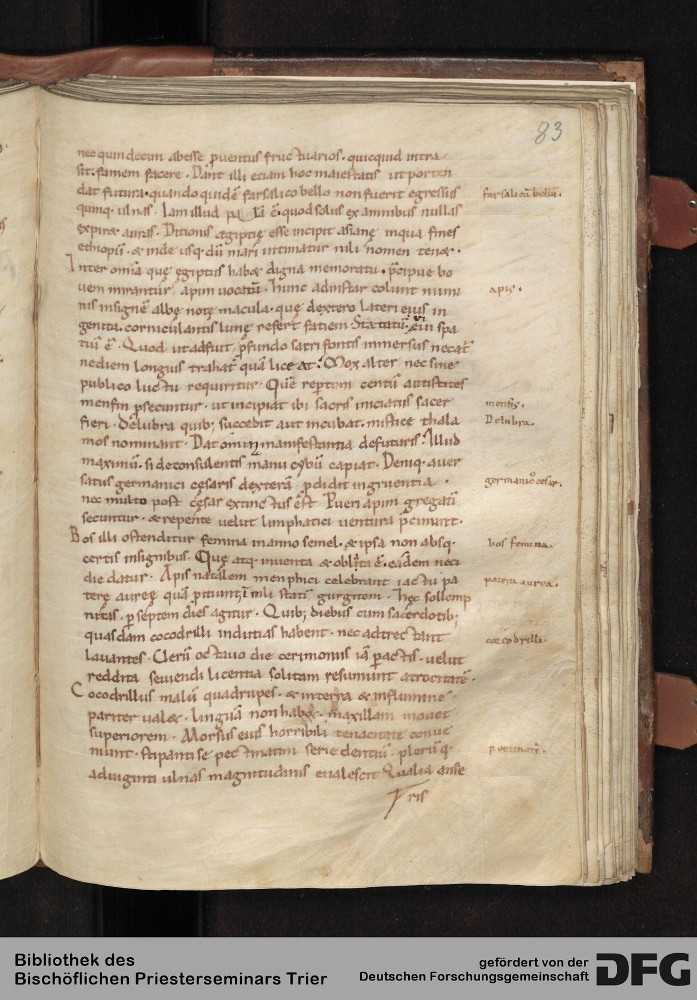 83
nec quindecim abesse ꝓventus fructuarios · quicquid intra
sit famem facere · Dant illi etiam hoc maiestatis ut porten
dat futura · quando quidē farsalico bello non fuerit egressus
farsalicū bellū ·
quinq· ulnas · Iam illud ē · quod solus ex amnibus nullas
expirat auras · Ditionis ęgiptię esse incipit asiene inqua fines
ethiopū · & inde usq· dū mari intimatur nili nomen tenet ·
Inter omīa quę ęgiptus habet digna memoratu · p̄cipue bo
vem mirantur apim vocatū · hunc adinstar colunt numi
apis ·
nis insignē albę notę macula · quę dextero lateri eius in
genita · corniculantis lunę refert faciem Statutū eiꝰ spa
tiū ē · Quod ut adfuit ꝓfundo sacri fontis immersus necat͛
ne diem longius trahat͛ quā liceat · Mox alter nec sine
publico luctu requiritur · Quē repertum centū antistites
menfin ꝓsecuntur · ut incipiat ibi sacris iniciatus sacer
menfis ·
fieri · Delubra quib; succedit aut incubat · mistice thala
Delubra ·
mos nominant · Dat omīn manifestantia defuturis · Illud
maximū · si deconsulentis manu cybū capiat · Deniq· aver
satus germanici cęsaris dexterā ꝓdidit ingruentia ·
germanicꝰ cesar ·
nec multo post cęsar extinctus est Pueri apim gregatī
secuntur · & repente velut limphatici ventura p̄cinunt ·
Bos illi ostenditur femina inanno semel · & ipsa non absq·
bos femina ·
certis insignibus · Quę atq· inventa & oblita ē · eadem neci
die datur · Apis natalem menphici celebrant iactu pa
patera aurea ·
terę aureę quā piciunt in nili statū gurgitem · hęc sollemp
nitas · p septem dies agitur · Quib; diebus cum sacerdotib;
quasdam cocodrilli indutias habent · nec adtrectant
cocodrilli ·
lavantes · Cerū octavo die cerimoniis iā ꝑactis · velut
reddita seviendi licentia solitam resumunt atrocitatē ·
Cocodrillus malū quadrupes · & interra & influmine
pariter valet · linguā non habet · maxillam movet
superiorem · Morsus eius horribili tenacitate conve
niunt · stipanti se pectinatim serie dentiū · plerūq·
pectinatī ·
adviginti ulnas magnitudinis evalescit Qualia anse
ris
Bibliothek des
Bischöflichen Priesterseminars Trier
gefördert von der
Deutschen Forschungsgemeinschaft
DFG